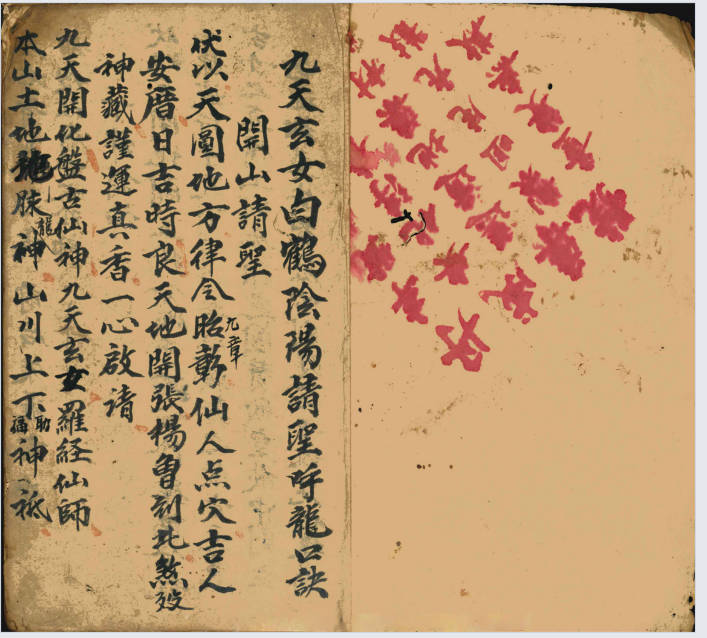 九天玄女白鶴陰陽請聖呼龍口訣
開山請聖
伏以天圓地方律令昭彰仙人点穴吉人
九章
安曆日吉時良天地開張楊曾到此煞歿
神藏謹運真香一心啟請
九天開化盤古仙神九天玄女羅経仙師
本山土地龍脉神山川上下神祗
龍
助福